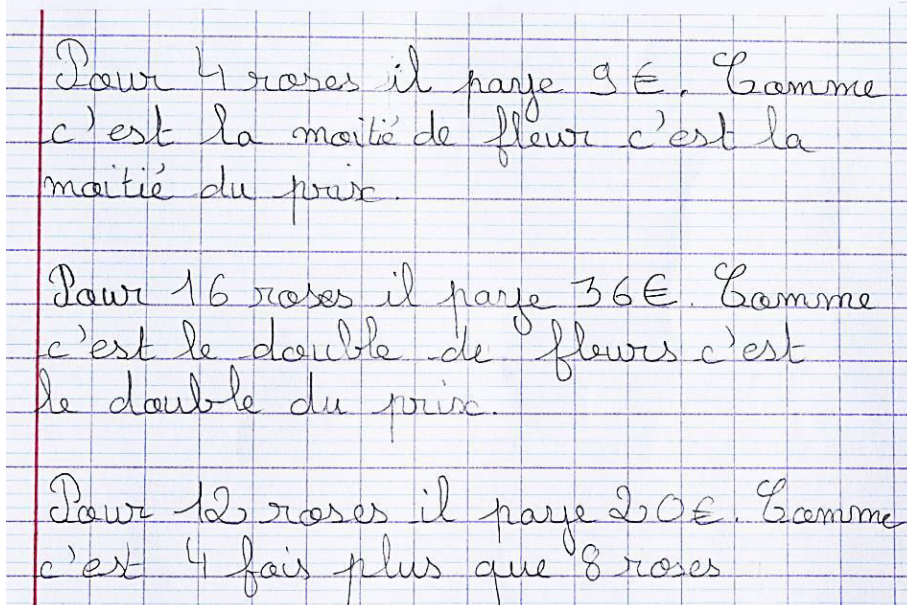 Pour 4 roses il paye 9 €. Comme
c'est la moitié de fleur c'est la
moitié du prix.
Pour 16 roses il paye 36 €. Comme
c'est le double de fleurs c'est
le double du prix.
Pour 12 roses il paye 20 €. Comme
c'est 4 fois plus que 8 roses